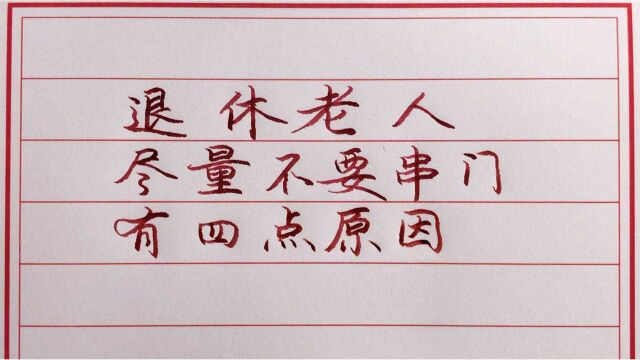 退休老人
尽量不要串门
有四点原因